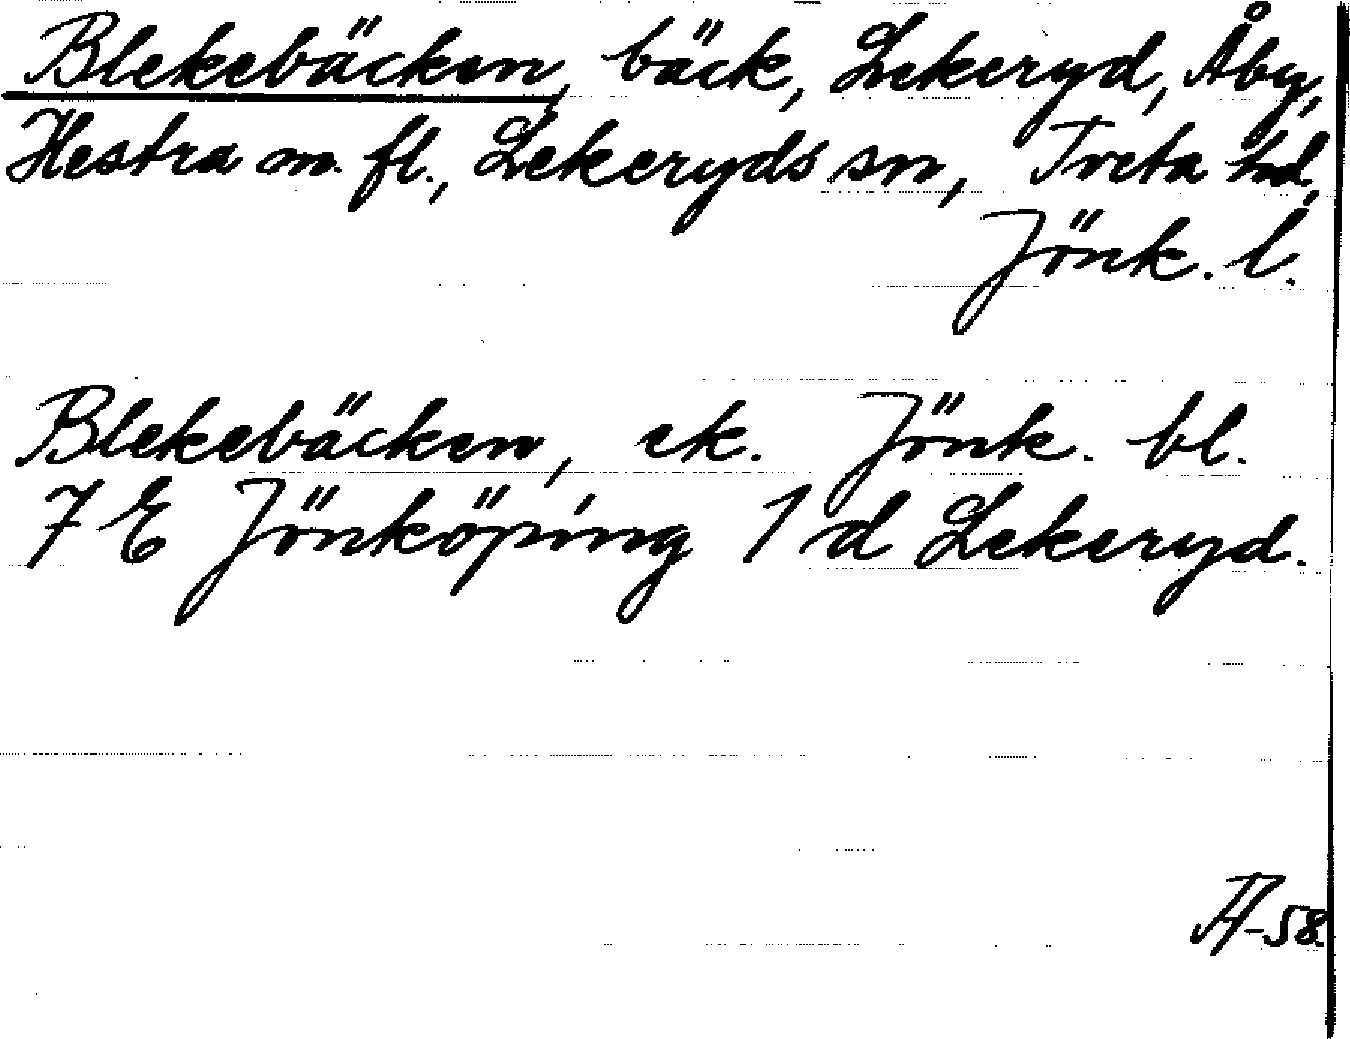 Blekebäcken, bäck, Lekeryd, Åby,
Hestra m. fl., Lekeryds sn, Tveta hd,
Jönk. l.
Blekebäcken, ek. Jönk. bl.
7 E Jönköping 1 d Lekeryd.
-58.